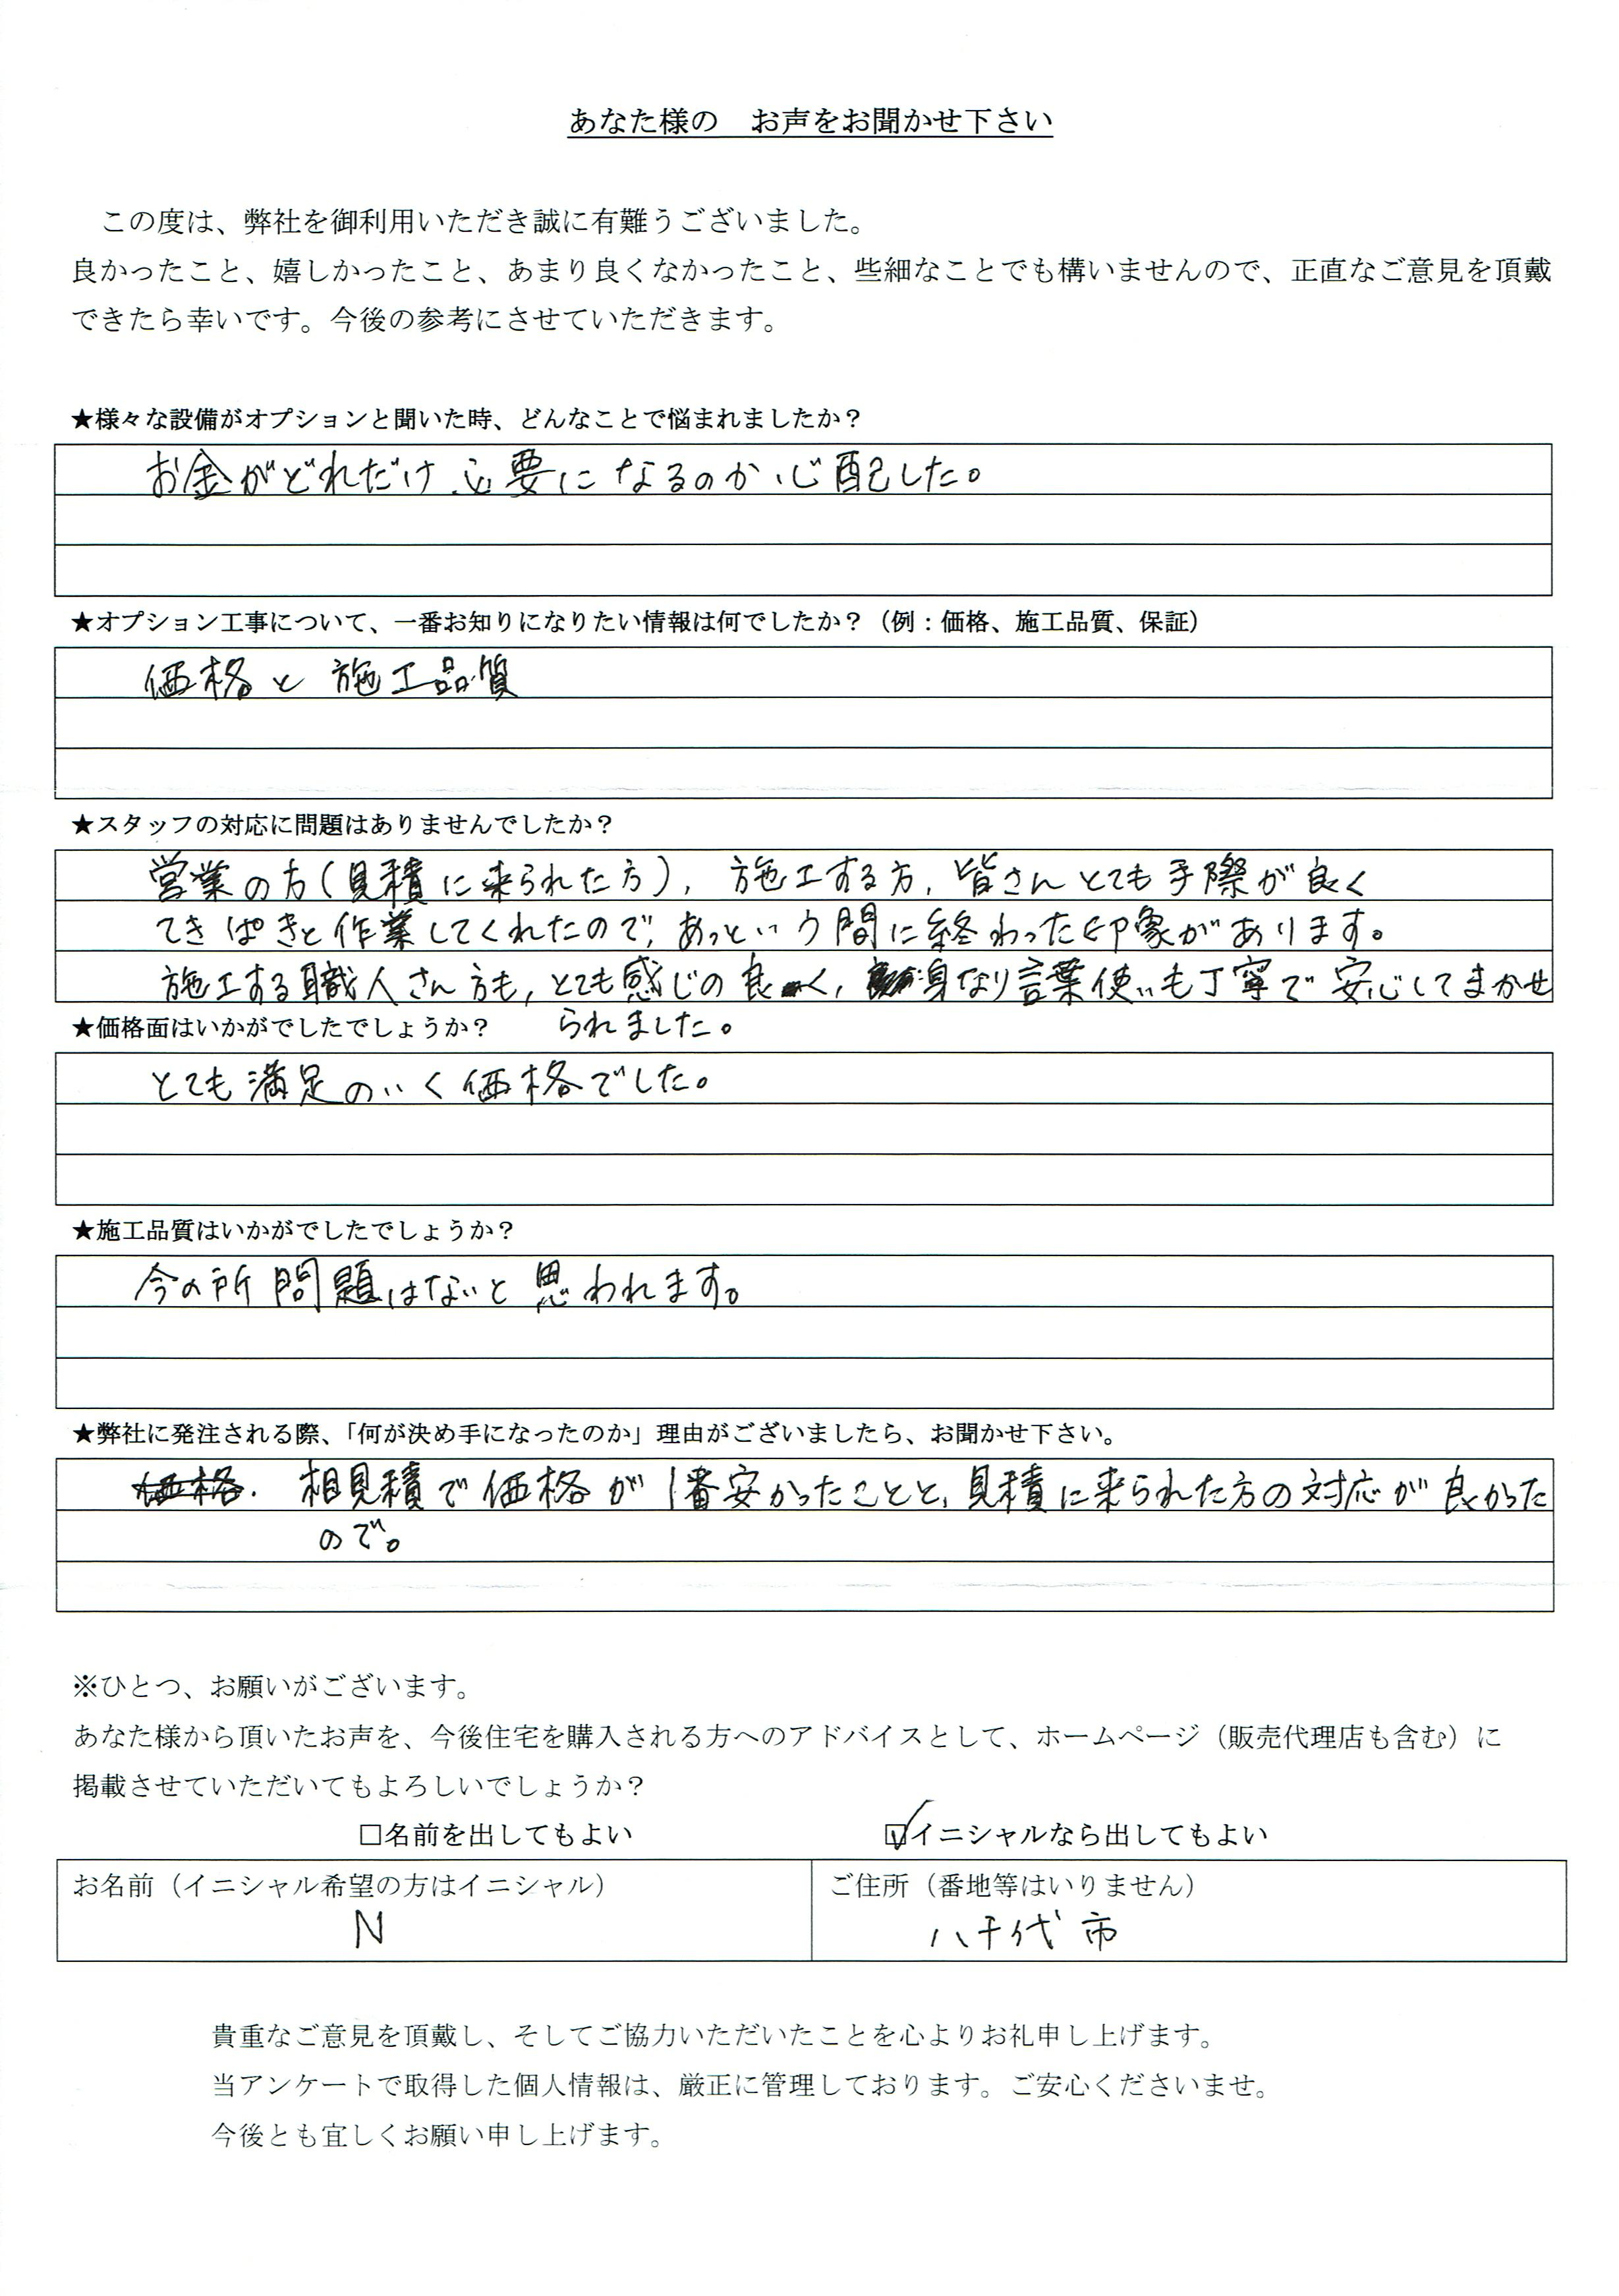 あなた様の　お声をお聞かせ下さい
この度は、弊社を御利用いただき誠に有難うございました。
良かったこと、嬉しかったこと、あまり良くなかったこと、些細なことでも構いませんので、正直なご意見を頂戴
できたら幸いです。今後の参考にさせていただきます。
★様々な設備がオプションと聞いた時、どんなことで悩まれましたか？
お金がどれだけ必要になるのか心配した。
★オプション工事について、一番お知りになりたい情報は何でしたか？（例：価格、施工品質、保証）
価格と施工品質
★スタッフの対応に問題はありませんでしたか？
営業の方(見積に来られた方)、施工する方、皆さんとても手際が良く
てきぱきと作業してくれたので、あっという間に終わった印象があります。
施工する職人さん方も、とても感じの良く、身なり言葉使いも丁寧で安心してまかせ
られました。
★価格面はいかがでしたでしょうか？
とても満足のいく価格でした。
★施工品質はいかがでしたでしょうか？
今の所問題はないと思われます。
★弊社に発注される際、「何が決め手になったのか」理由がございましたら、お聞かせ下さい。
価格. 相見積で価格が1番安かったことと、見積に来られた方の対応が良かった
ので。
※ひとつ、お願いがございます。
あなた様から頂いたお声を、今後住宅を購入される方へのアドバイスとして、ホームページ（販売代理店も含む）に
掲載させていただいてもよろしいでしょうか？
□名前を出してもよい　☑イニシャルなら出してもよい
お名前（イニシャル希望の方はイニシャル）　ご住所（番地等はいりません）
N　八千代市
貴重なご意見を頂戴し、そしてご協力いただいたことを心よりお礼申し上げます。
当アンケートで取得した個人情報は、厳正に管理しております。ご安心くださいませ。
今後とも宜しくお願い申し上げます。